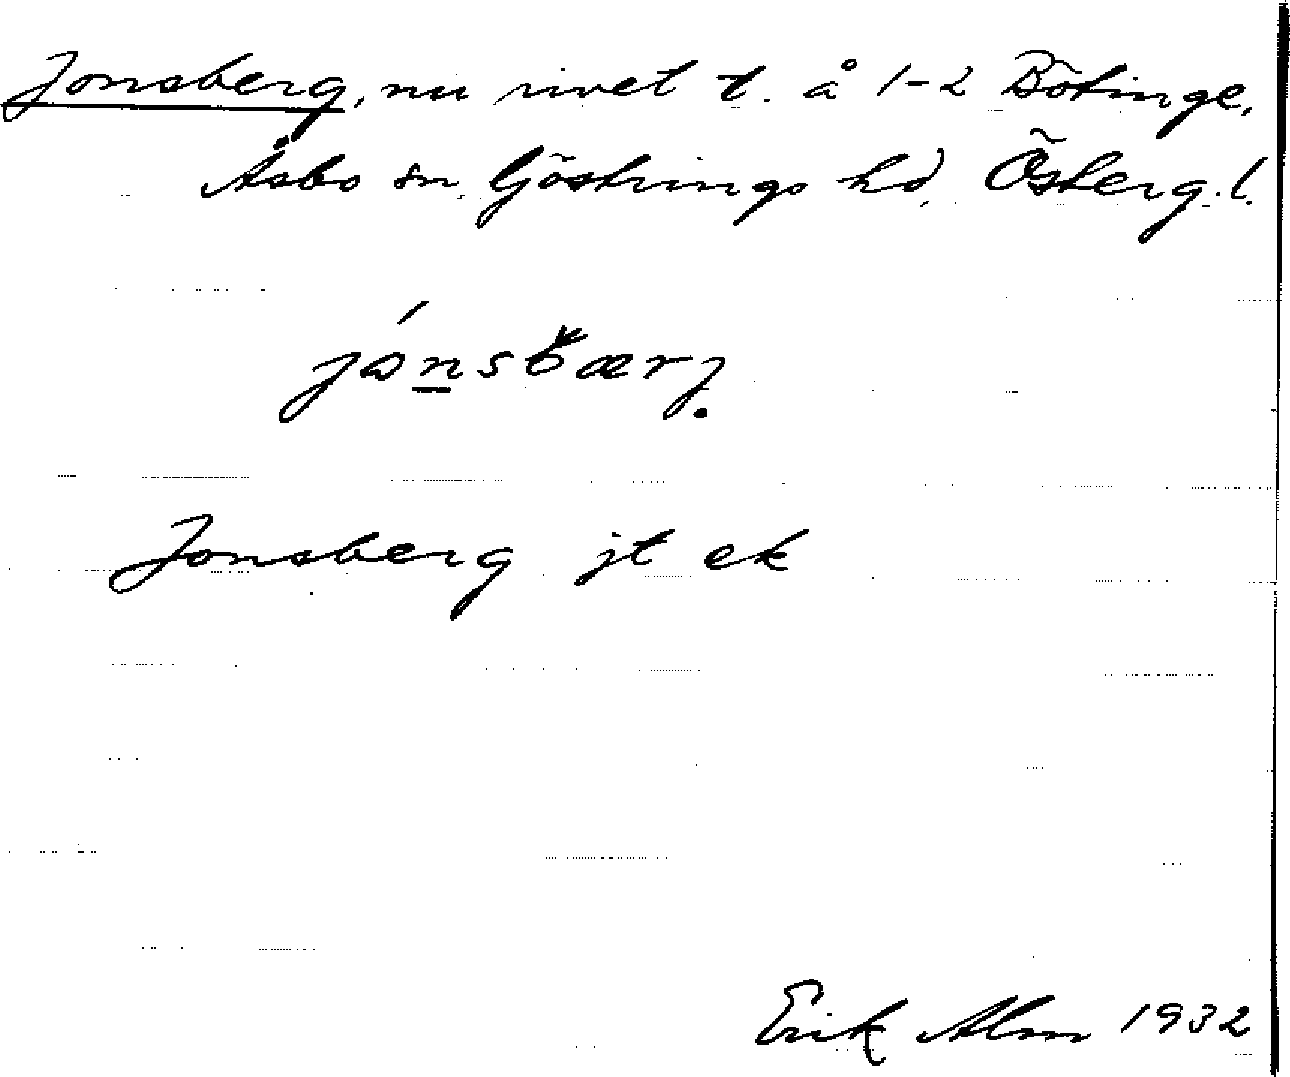 Jonsberg, nu rivet t. å 1-2 Bötinge,
Åsbo sn, Göstrings hd, Österg.l.
jónsbærj.
Jonsberg jt ek
Erik Alm 1932